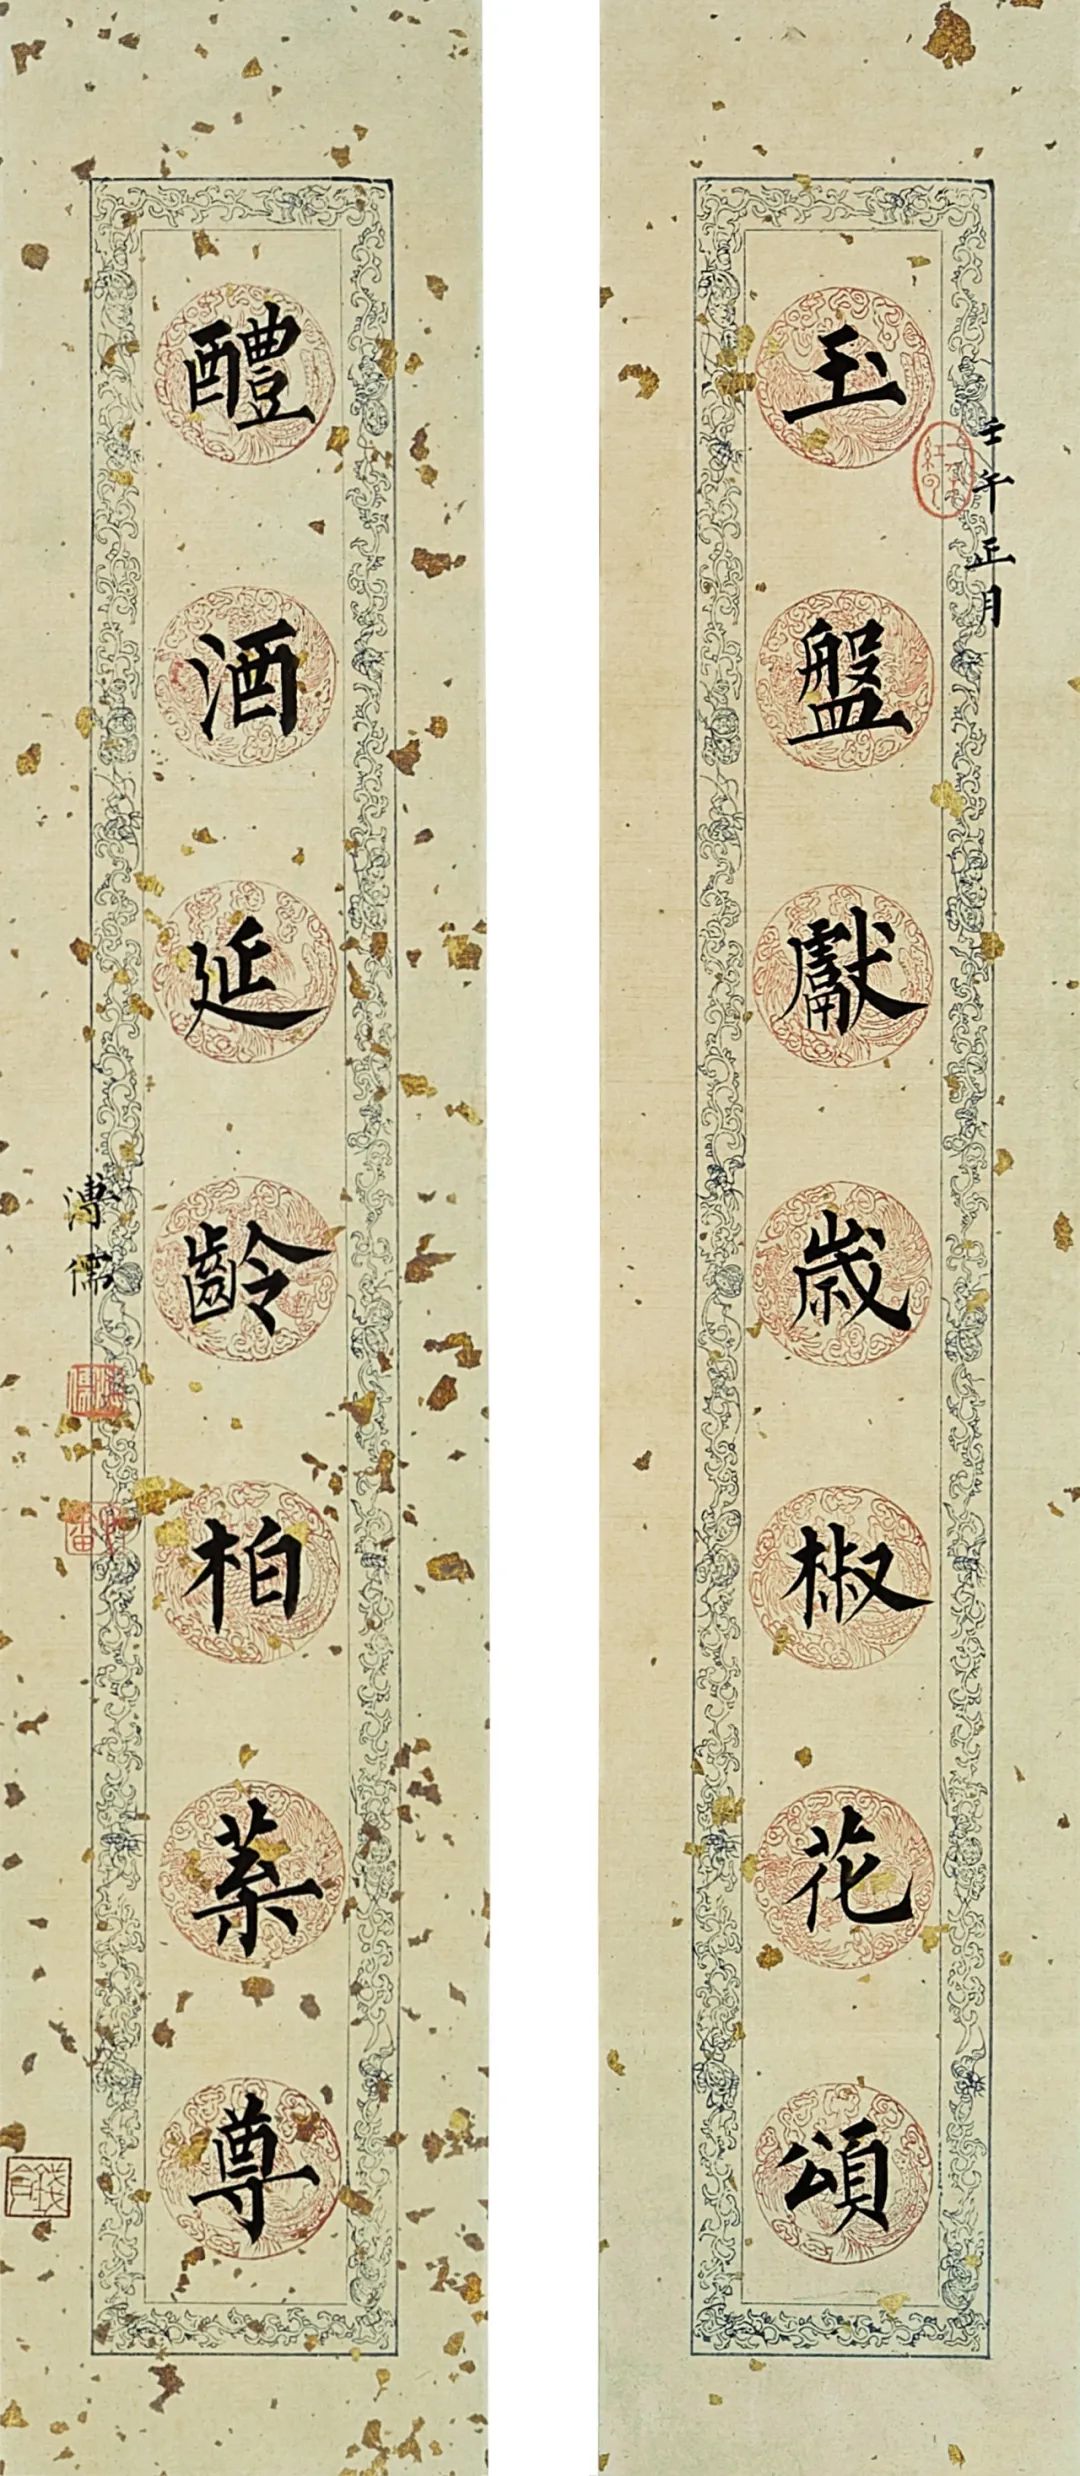 壬午正月
玉盤獻歲椒花頌
醴酒延齡柏葉尊
溥儒